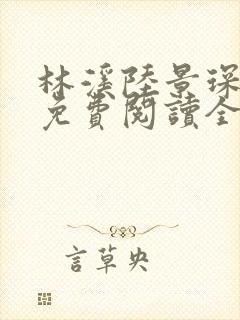 林溪陸景琛
免費閱讀全
言草央